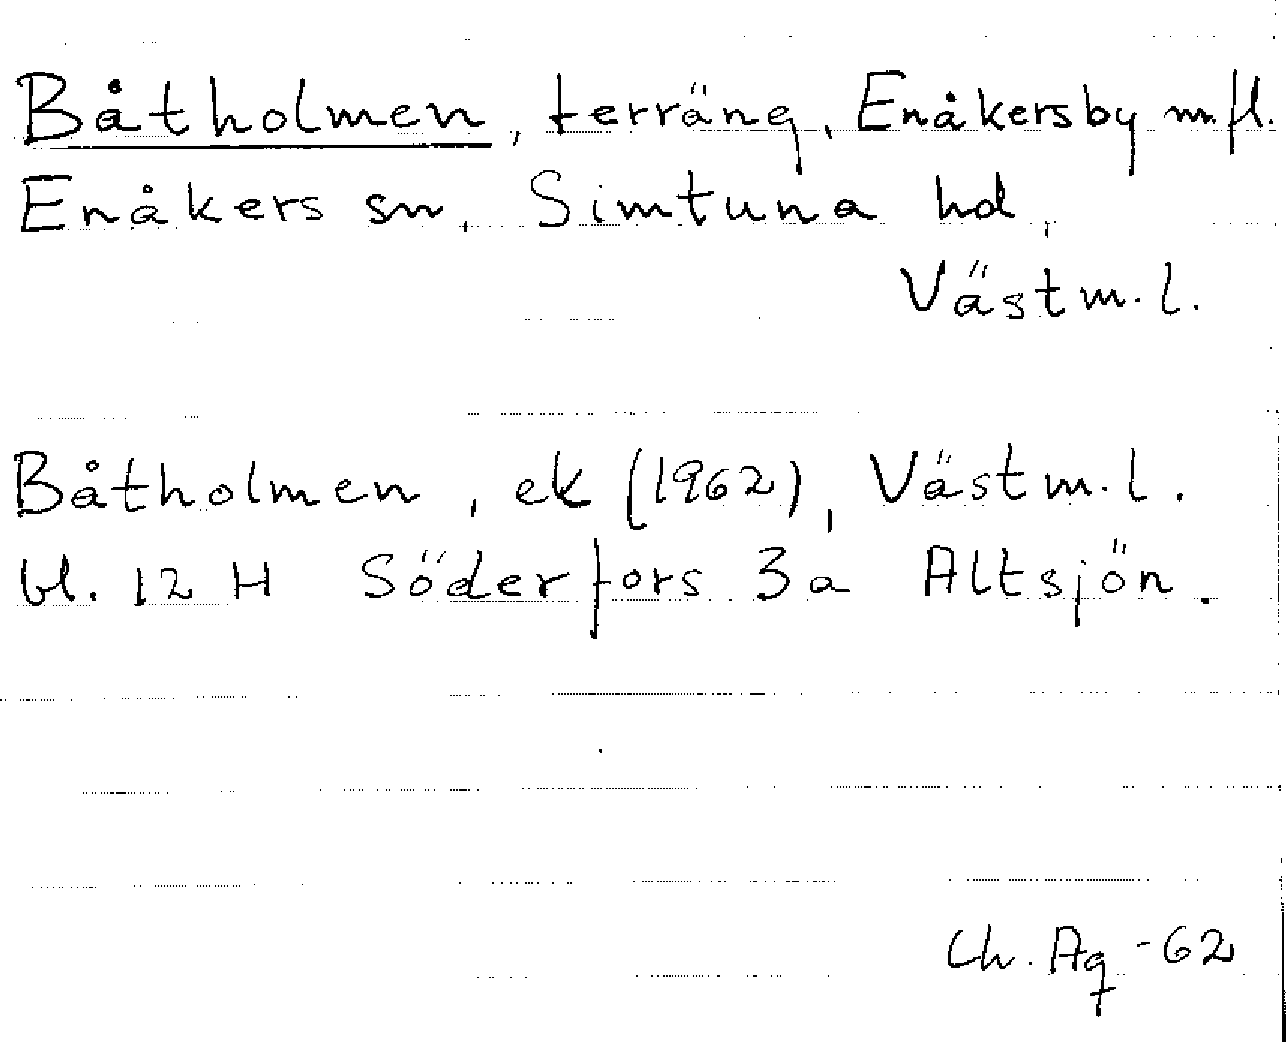 Båtholmen, terräng, Enåkersby m.fl.
Enåkers sn, Simtuna hd,
Västm.l.
Båtholmen, ek (1962), Västm.l.
bl. 12 H Söderfors 3a Altsjön.
Ch. Ag -62